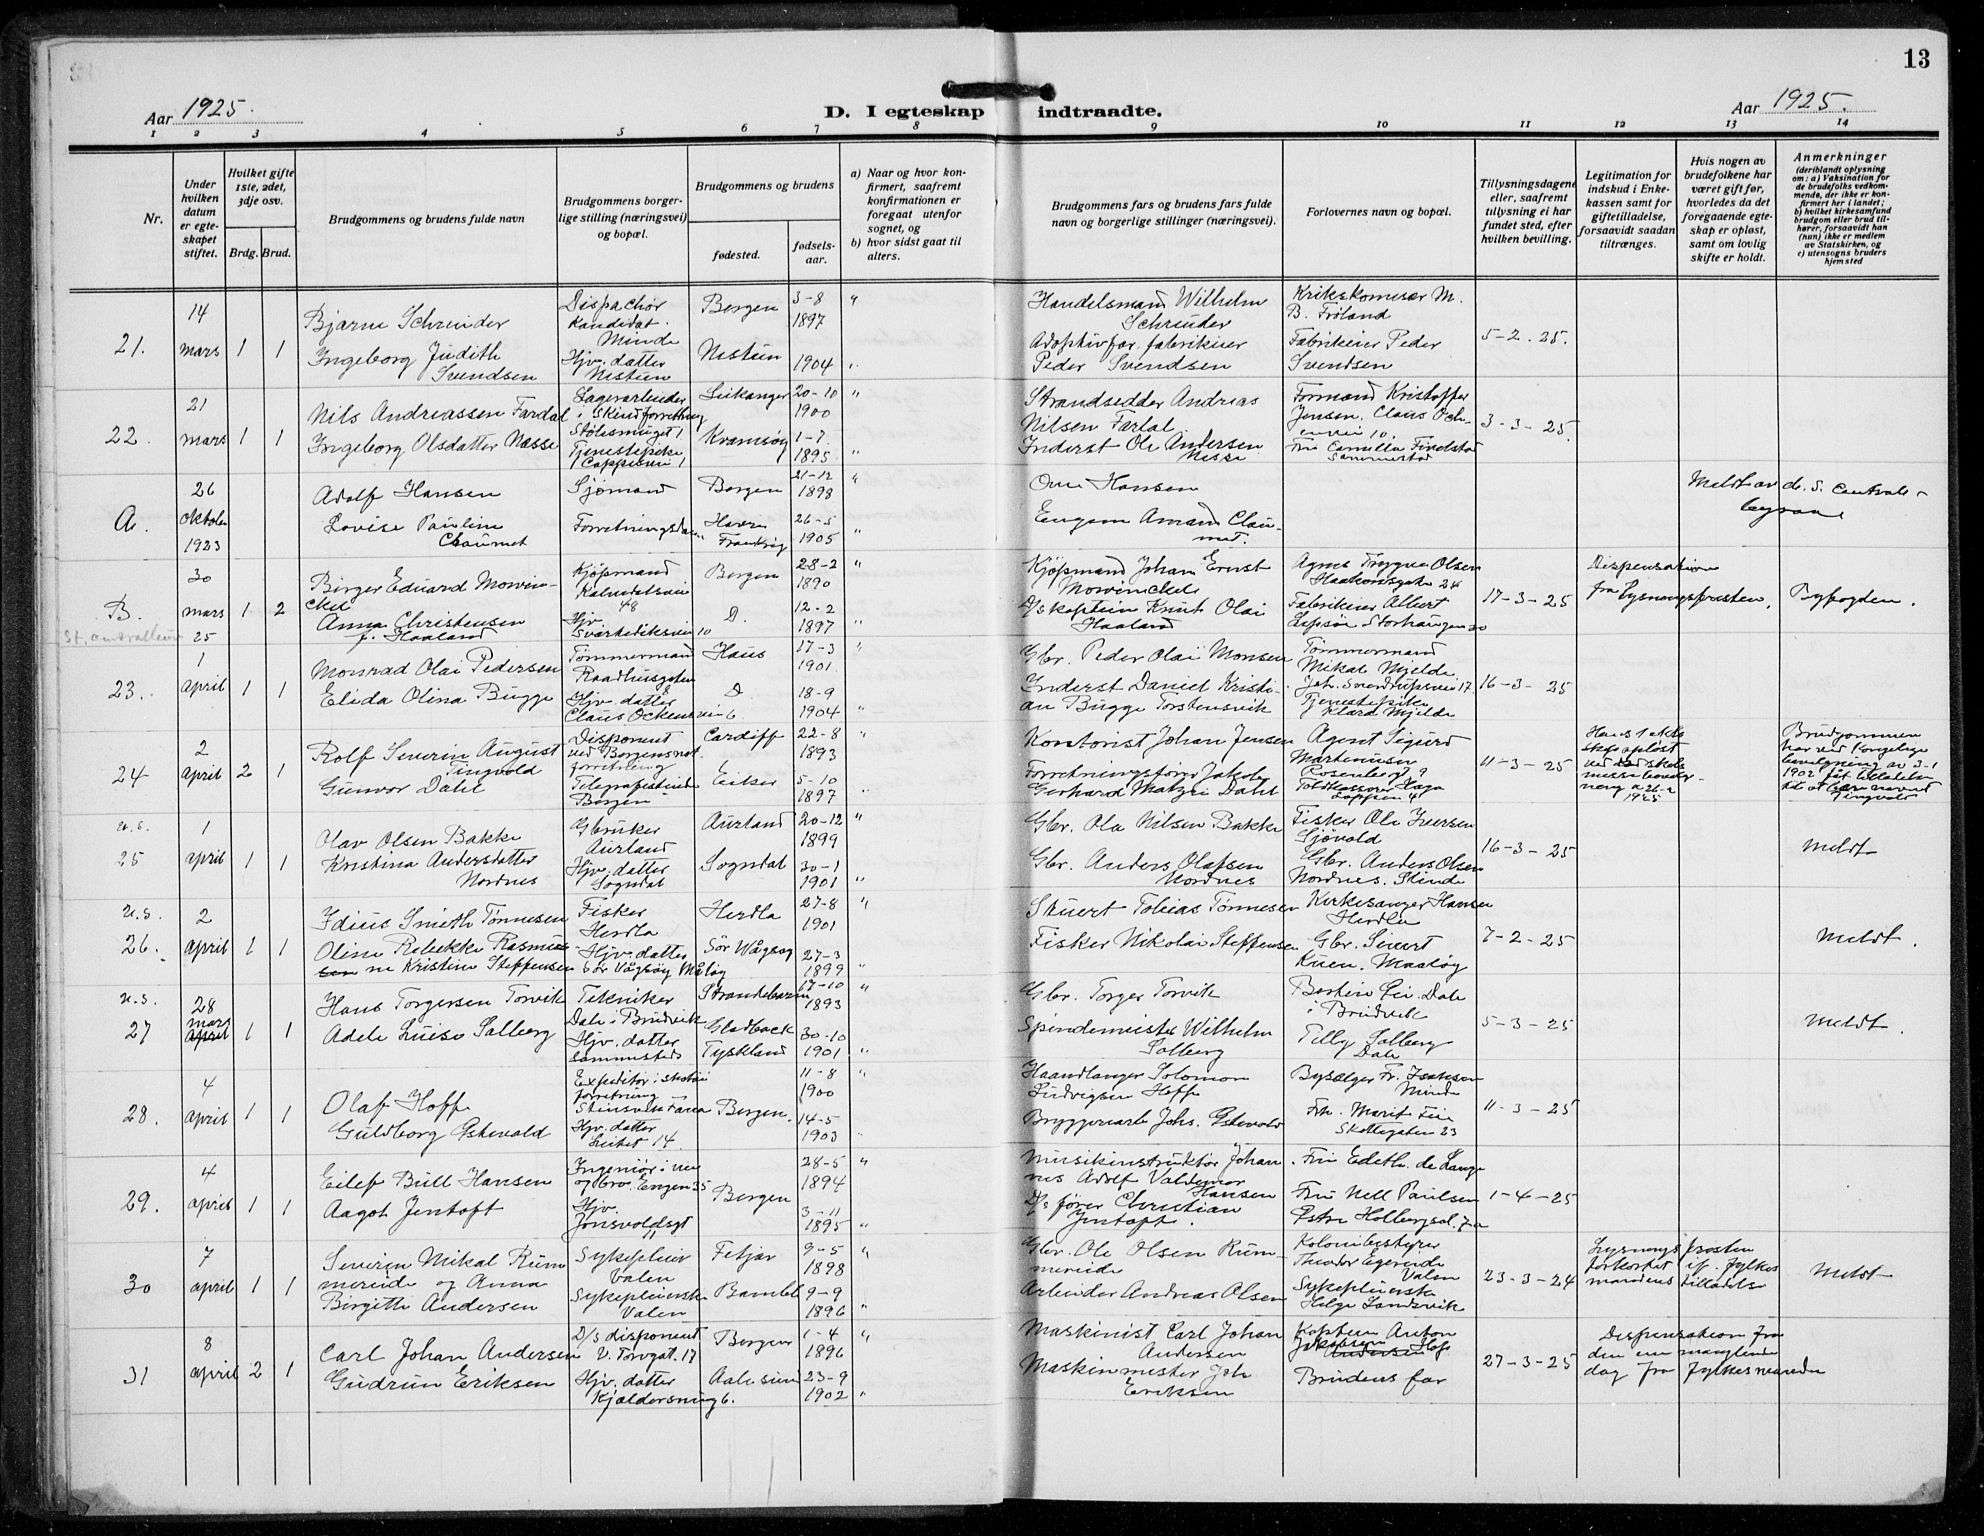 13
Aar 1925.
D. I egteskap indtraadte.
Aar 1925.
1 2 3 4 5 6 7 8 9 10 11 12 13 14
Nr.
Under hvilken datum er egteskapet stiftet.
Hvilket gifte 1ste, 2det, 3dje osv.
Brdg. Brud.
Brudgommens og brudens fulde navn
Brudgommens borgerlige stilling (næringsvei) og bopæl.
Brudgommens og brudens
fødested.
fødselsaar.
a) Naar og hvor konfirmert, saafremt konfirmationen er foregaat utenfor sognet, og
b) hvor sidst gaat til alters.
Brudgommens fars og brudens fars fulde navn og borgerlige stillinger (næringsvei).
Forlovernes navn og bopæl.
Tillysningsdagene eller, saafremt tillysning ei har fundet sted, efter hvilken bevilling.
Legitimation for indskud i Enkekassen samt for giftetilladelse, forsaavidt saadan tiltrænges.
Hvis nogen av brudefolkene har været gift før, hvorledes da det foregaaende egteskap er opløst, samt om lovlig skifte er holdt.
Anmerkninger
(deriblandt oplysning om: a) Vaksination for de brudefolks vedkommende, der ikke er konfirmert her i landet; b) hvilket kirkesamfund brudgom eller brud tilhører, forsaavidt han (hun) ikke er medlem av Statskirken, og c) utensogns bruders hjemsted
21. 14 mars 1 1
Bjarne Schreuder
Ingeborg Judith Svendsen
Dispachør kandidat. Minde
Hjv. datter Nestun
Bergen 3-8 1897 "
Nestun 1904 "
Handelsmand Wilhelm Schreuder
Adoptivfar. fabrikeier Peder Svendsen
Krikskomisær M. B. Frøland
Fabrikeier Peder Svendsen
5-2.25.
22. 21 mars 1 1
Nils Andreassen Fardal
Ingeborg Olsdatter Næsse
Lagerarbeider i Skindforretning
Stølesmuget 1
Leikanger 20-10 1900 "
Kvamsøy 1-7 1895 "
Strandsedder Andreas Nilsen Farlal
Inderst Ole Andersen Nesse
Formand Kristoffer Jensen. Claus Ockensvei 10.
Frk Camilla Findstad Sammestad
3-3-25.
A. 26 oktober 1923
Adolf Hansen
Lovise Pauline Chaumet
Sjømand
Bergen 21-12 1898 "
Havre Frankrig 26-5 1905 "
Hansen
Eugen Amand Chaumet.
Meldt av d. S. Centralbyraa
B. 30 mars 25 1 2
St. centralbur
Birger Eduard Mowinckel
Anna Christensen f. Haaland
Kjøpmand Kalvedalsvei 48
Hjv. Svartediksvei 10
Bergen 28-2 1890 "
D. 12-2 1897 "
Kjøpmand Johan Ernst Mowinckel
D/s kaptein Knut Olai Haaland
Agnes Trygve Olsen Haakonsgaten 24
Fabrikeier Albert Espsøn Storhaugen 20
17-3-25
Dispensation fra lysningsfristen,
Byfogden.
23. 1 april 1 1
Monrad Olai Pedersen
Elida Olina Bugge
Tømmermand Raadhusgaten
Hjv. datter Claus Ockensvei 6.
Haus 17-3 1901. "
D. 18-9 1904 "
Gbr. Peder Olai Monsen
Inderst Daniel Kristian Bugge Torstensvik
Tømmermand Mikal Mjelde Joh. Sverdrupsvei 17.
Tjenestepike Klara Mjelde
16-3-25
24 2 april 2 1
Rolf Severin August Tingvold
Gunvor Dahl
Disponent ved Bergens forretning
Telegrafistinde Bergen
Cardiff 22-8 1893 "
Eiker 5-10 1897 "
Kontorist Johan Jensen
Forretningsfører Jakob Gerhard Matzri Dahl
Agent Sigurd Martinusen Rosenberg 9
Toldkasserer Haga Loppen 4
11-3-25
Hans 1 ekteskap opløst
26-2 1925
Brudgommen har ved kongelig bevilgning av 3-1 1902 fåt tilladelse til at bære navnet Tingvold
u.s.
25 1 april 1 1
Olav Olsen Bakke
Kristina Andersdatter Nordnes
Gbruker Aurland
Hjv. datter Sogndal
Aurland 20-12 1899 "
Sogndal 30-1 1901 "
Gbr. Ola Nilsen Bakke
Gbr. Anders Olafsen Nordnes
Fisker Ole Iversen Sjøvold
Gbr. Anders Olsen Nordnes.
16-3-25
Meldt
u.s.
26. 2 april 1 1
Idius Smith Tønnesen
Oline Rebekka Rasmussen ne Kristine Steffensen
Fisker Herdla
Hjv. datter Sør Vågsøy Måløy
Herdla 27-8 1901 "
Sør Vågsøy 27-3 1899 "
Skuert Tobias Tønnesen
Fisker Nikolai Steffensen
Kirkesanger Hansen Herdla
Gbr. Sivert Kuen. Maaløy
7-2-25
Meldt.
u.s.
27 28 mars april 1 1
Hans Torgersen Torvik
Adele Luise Solberg
Tekniker Dale i Bruvik
Hjv. datter sammesteds
Strandebarm 17-10 1893 "
Gladback Tyskland 30-10 1901 "
Gbr. Torger Torvik
Spindemester Wilhelm Solberg
Dale i Bruvik
Tilly Solberg Dale
5-3-25
Meldt.
28. 4 april 1 1
Olaf Hoff
Guldborg Østevold
Expeditør i skotøi forretning
Hjv. datter Leitet 14.
Bergen. 11-8 1900 "
14-5 1903 "
Haandlanger Solomon Ludvigsen Hoff
Bryggearb Johs. Østevold
Bysælger Fr. Isaksen Minde
Frk. Marit Lie Skottegaten 23
11-3-25
29. 4 april 1 1
Eilef Bull Hansen
Aagot Jentoft
Ingeniør i vei og brv. Engen 35
Hjv. Jonsvoldsgt
Bergen 28-5 1894 "
3-11 1895 "
Musikinstruktør Johannes Adolf Valdemar Hansen
D/s fører Christian Jentoft.
Fru Edeth. de Lange
Fru Nell Paulsen Østre Holbergsal. 7a
1-4-25
30 7 april 1 1
Severin Mikal Rummereide og Anna Birgitte Andersen
Sykepleier Valen
Sykepleierske Valen
Fitjar 9-5 1898 "
Bamble 9-9 1896 "
Gbr. Ole Olsen Rummereide
Arbeider Andreas Olsen
Kolonibestyrer Theodor Egerende Valen
Sykepleierske Helga Sandsvik
23-3-24
Lysningsfristen forkortet if. fylkesmandens tilladelse
Meldt
31 8 april 2 1
Carl Johan Andersen
Gudrun Eriksen
D/s disponent V. Torvgat. 17
Hjv. datter Kjeldersmug 6.
Bergen 1-4 1896 "
Aalesund 23-9 1902 "
Maskinist Carl Johan Andersen
Maskinmester Joh Eriksen
Kaptein Anton Jakobsen Andersen Hop
Brudens far
27-3-25
Dispensation fra den ene manglende dag fra fylkesmanden